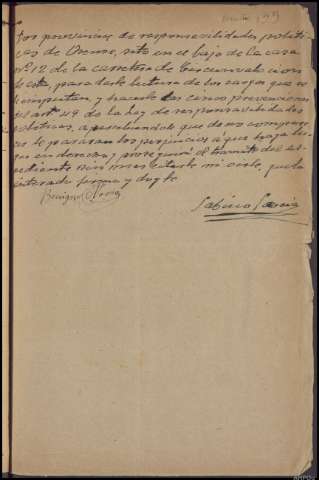 tor provincial de responsavilidades politi-
cas de Orense, sito en el bajo de la casa
nº 12 de la carretera de Circunvalacion
de esta, para darle lectura de los cargos que se
le imputan, y hacerle las cinco prevenciones
del art 49 de la ley de responsavilidades
politicas, apercibiendole que de no comparecer
le pararan los perjuicios a que haya lu-
gar en derecho y proseguirá el tramite del ex-
pediente sin mas citarle ni oirle, queda
enterado firma y doy fe
Sabino Garcia